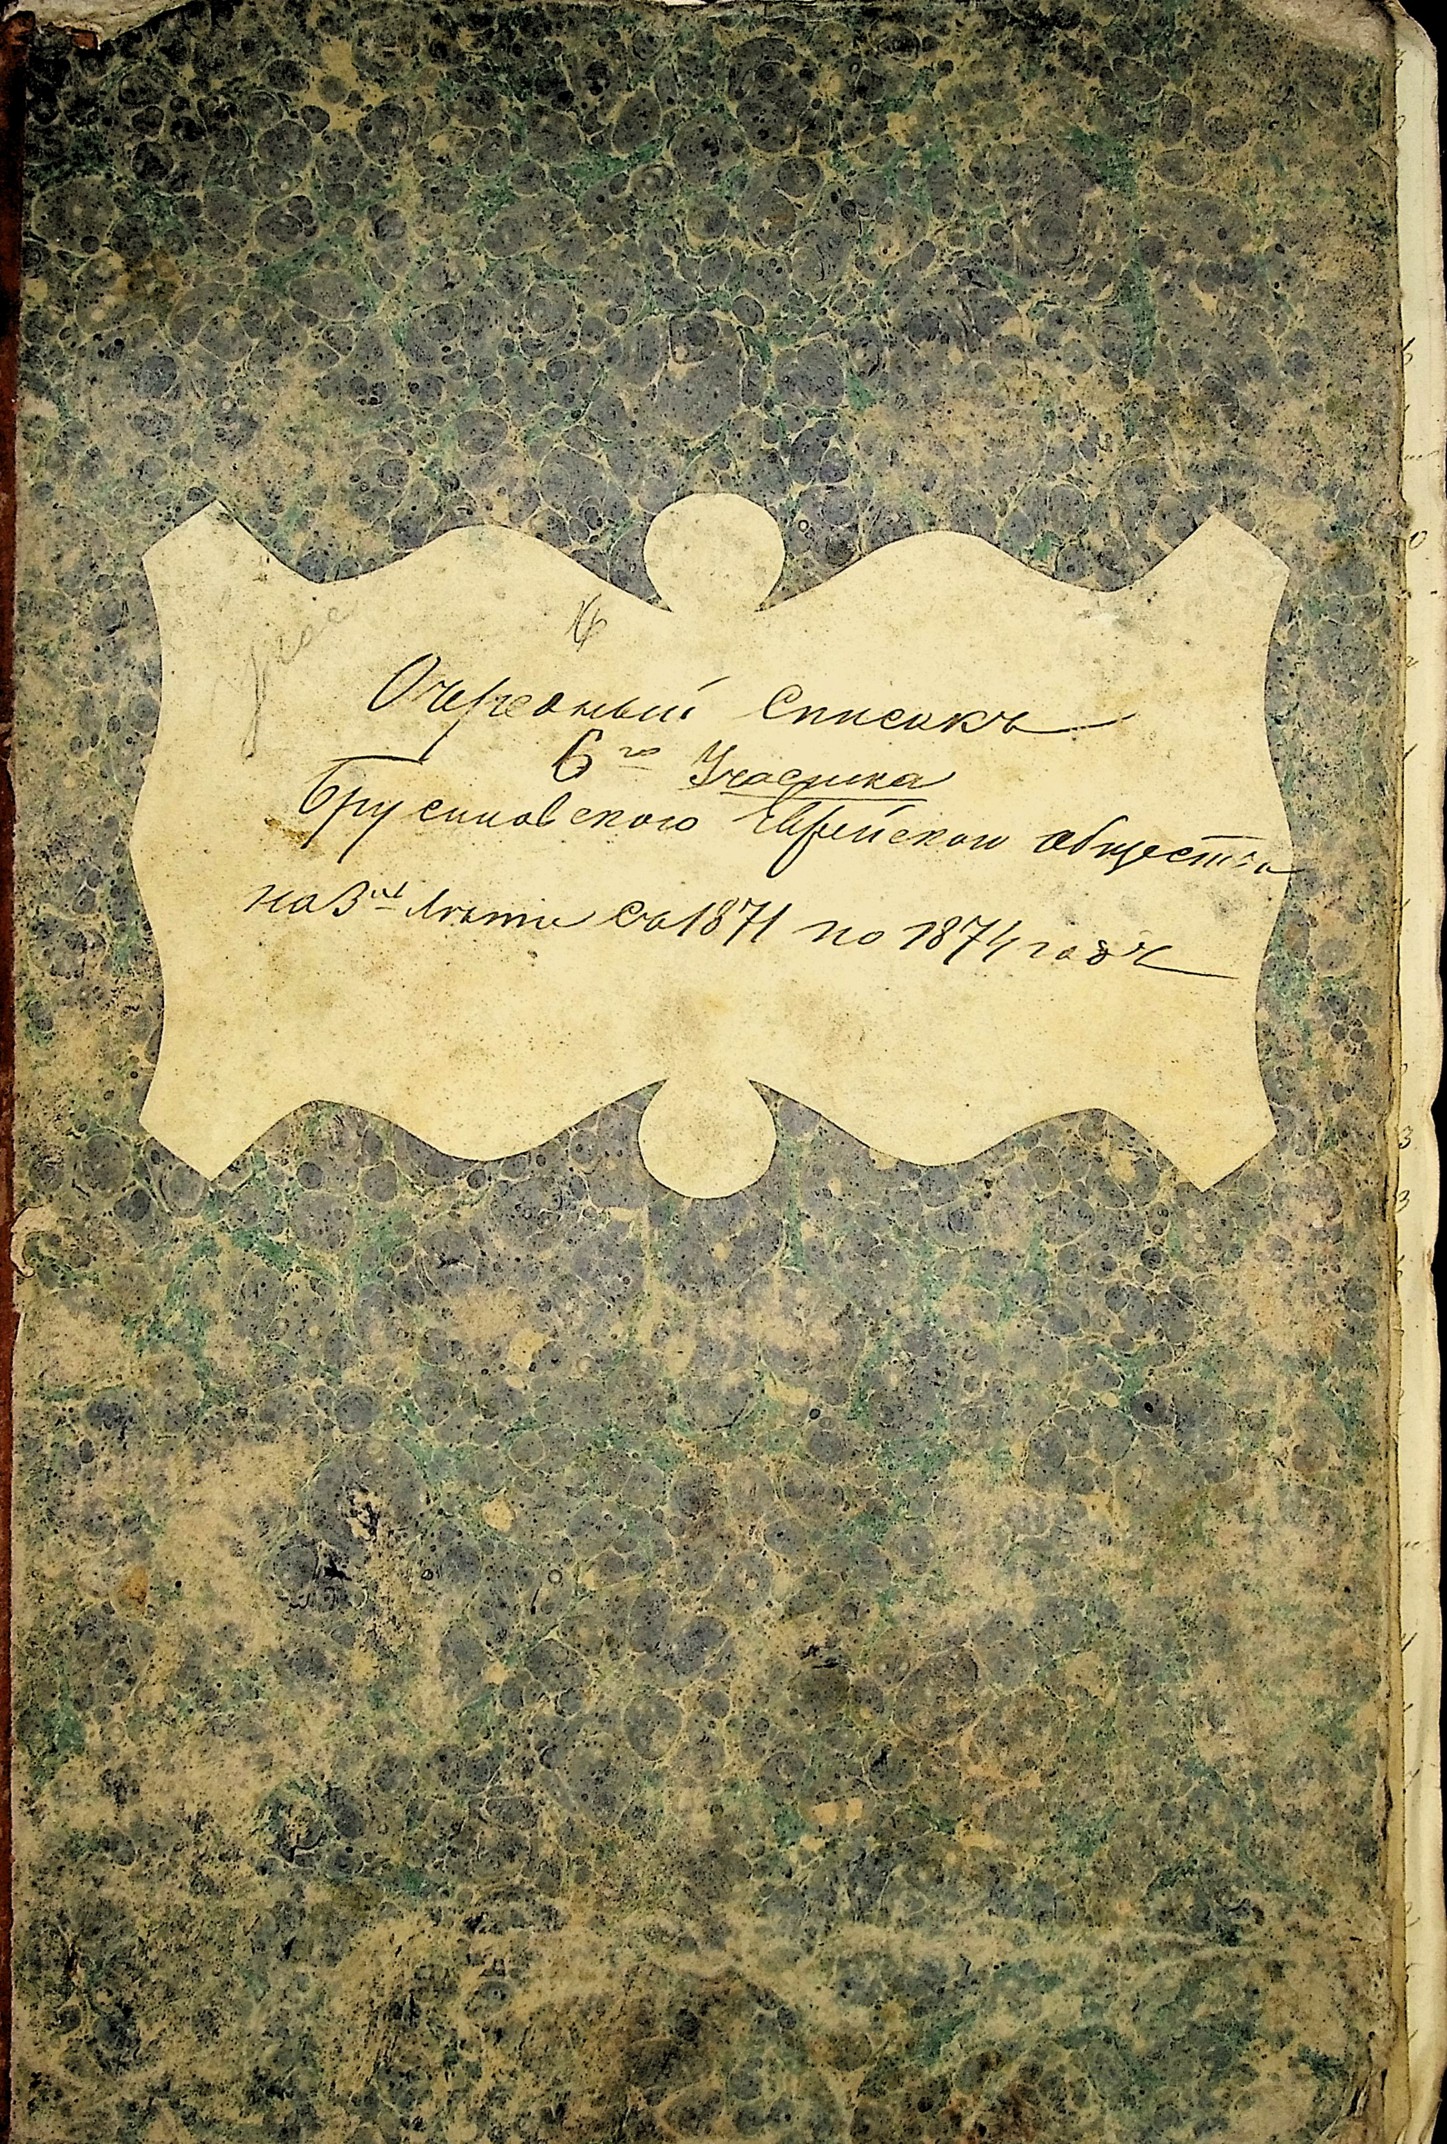 Очередный Списокъ
6го Участка
Брусиловского Еврейского общества
на 3и лѣтие Съ 1871 по 1874 годъ